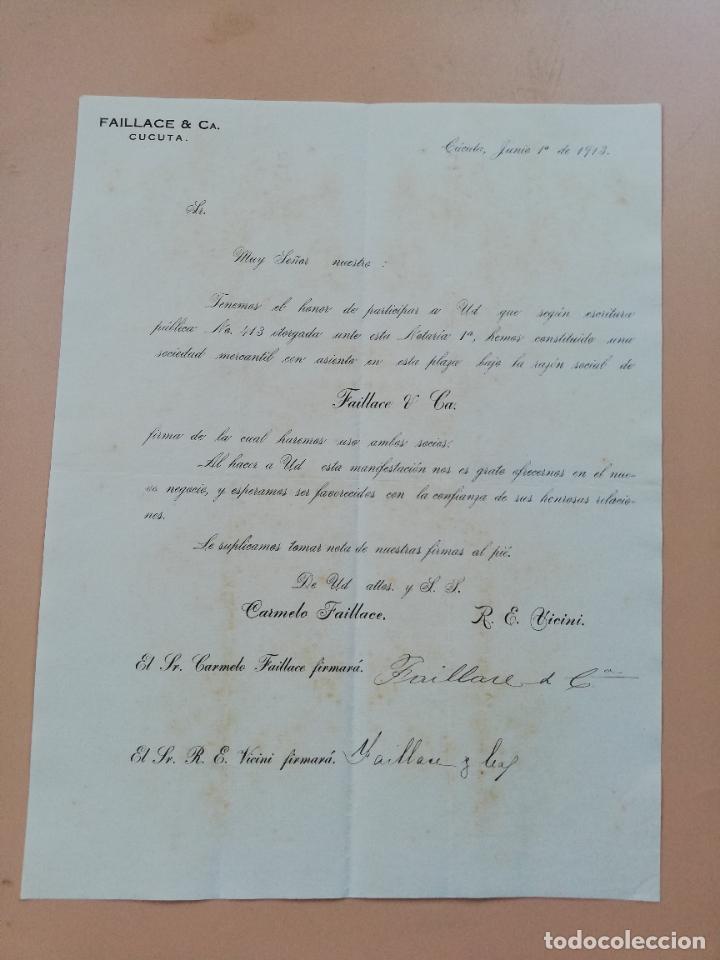 FAILLACE & CA.
CUCUTA.
Cúcuta, Junio 1º de 1913.
Sr.
Muy Señor nuestro:
Tenemos el honor de participar a Ud que según escritura
pública No. 413 otorgada ante esta Notaría 1ª, hemos constituido una
sociedad mercantil con asiento en esta plaza bajo la razón social de
Faillace & Ca.
firma de la cual haremos uso ambos socios.
Al hacer a Ud esta manifestación nos es grato ofrecernos en el nue-
vo negocio, y esperamos ser favorecidos con la confianza de sus honrosas relacio-
nes.
Le suplicamos tomar nota de nuestras firmas al pié.
De Ud attos. y S. S.
Carmelo Faillace. R. E. Vicini.
El Sr. Carmelo Faillace firmará. Faillace & Cª
El Sr. R. E. Vicini firmará. Faillace y Ca
todocoleccion
todocoleccion.net